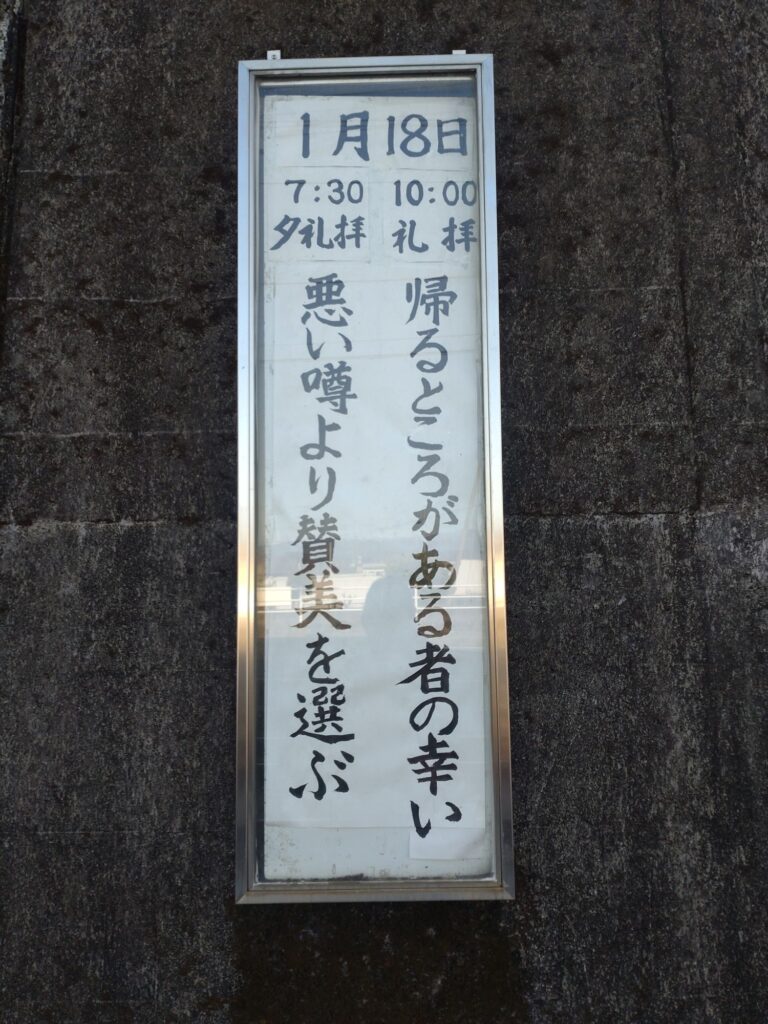 1月18日
10:00
礼拝
帰るところがある者の幸い
7:30
夕礼拝
悪い噂より賛美を選ぶ